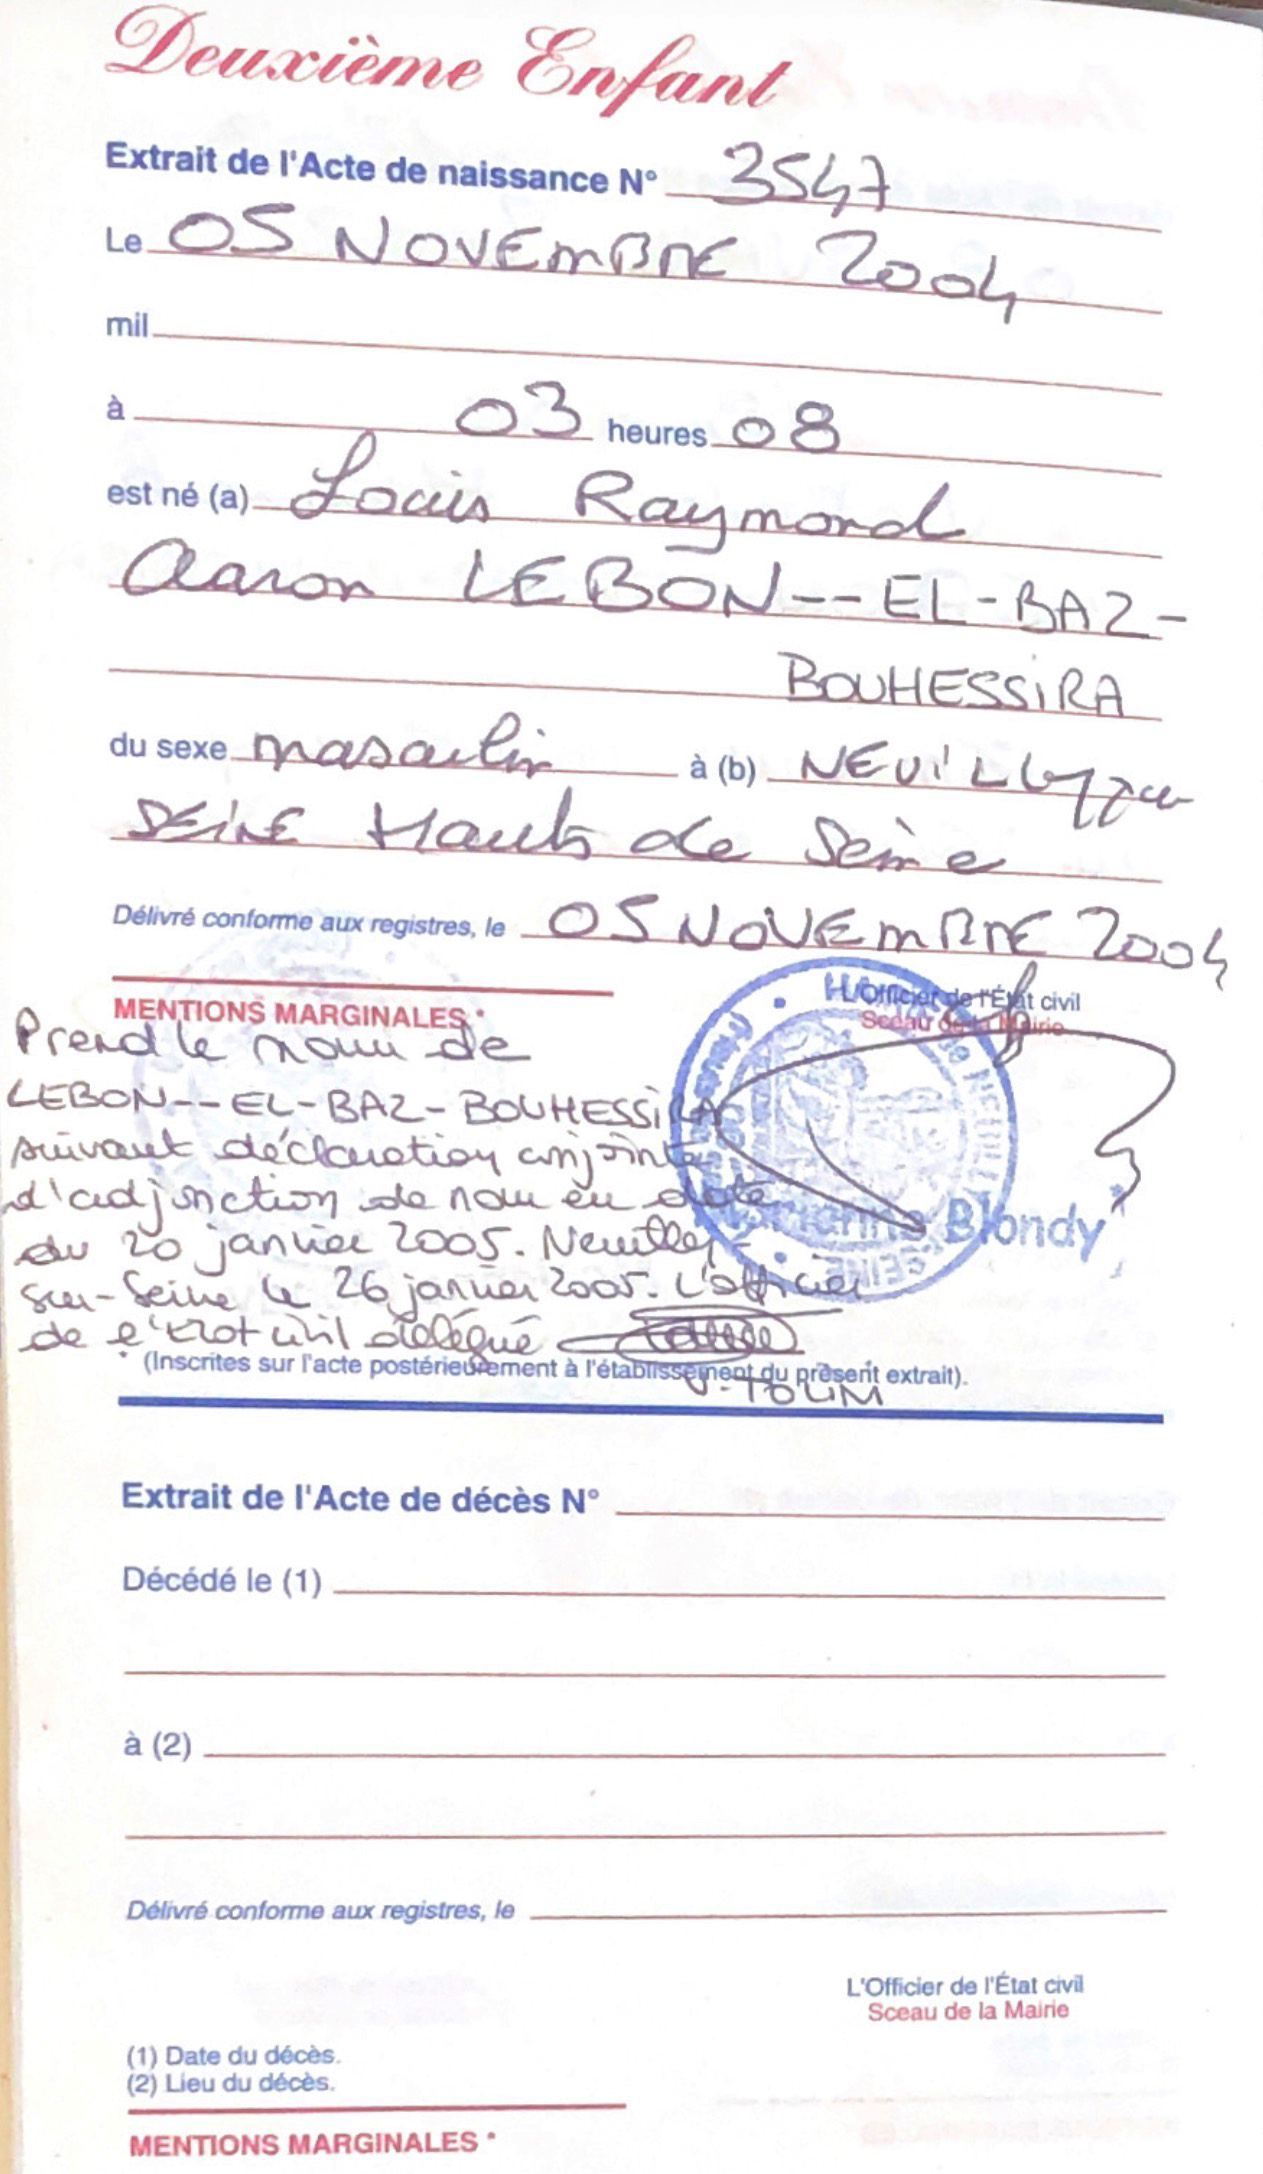 Deuxième Enfant
Extrait de l'Acte de naissance N° 3547
Le 05 NOVEMBRE 2004
mil
à 03 heures 08
est né (a) Louis Raymond
Aaron LEBON--EL-BAZ-
BOUHESSIRA
du sexe masculin à (b) NEUILLY sur
SEINE Hauts de Seine
Délivré conforme aux registres, le 05 NOVEMBRE 2004
L'Officier de l'État civil
Sceau de la Mairie
MENTIONS MARGINALES *
Prend le nom de
LEBON--EL-BAZ-BOUHESSIRA
suivant déclaration conjointe
d'adjonction de nom en date
du 20 janvier 2005. Neuilly-
sur-Seine le 26 janvier 2005. L'officier
de l'état civil délégué
Blondy
* (Inscrites sur l'acte postérieurement à l'établissement du présent extrait).
V. TOLIM
Extrait de l'Acte de décès N°
Décédé le (1)
à (2)
Délivré conforme aux registres, le
L'Officier de l'État civil
Sceau de la Mairie
(1) Date du décès.
(2) Lieu du décès.
MENTIONS MARGINALES *